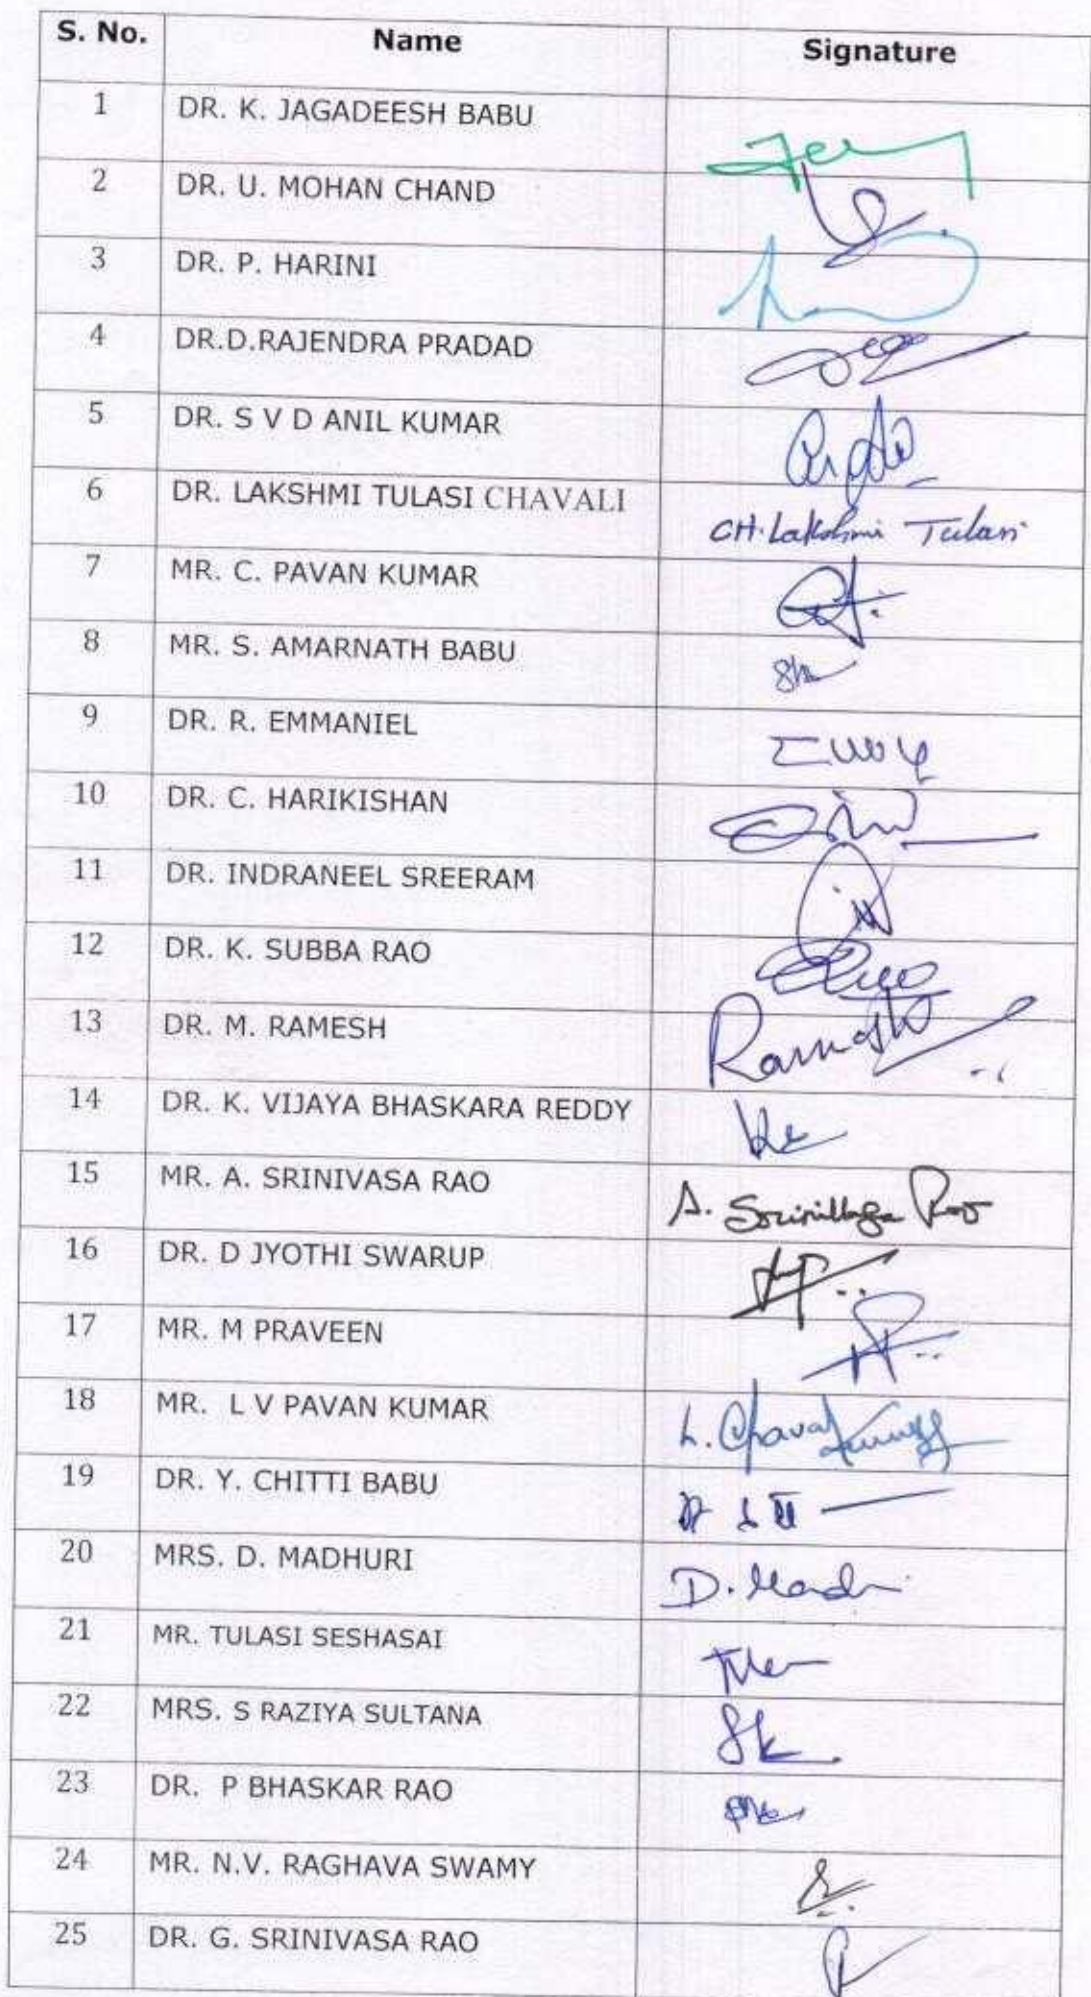 S. No. Name Signature
1 DR. K. JAGADEESH BABU
2 DR. U. MOHAN CHAND
3 DR. P. HARINI
4 DR.D.RAJENDRA PRADAD
5 DR. S V D ANIL KUMAR
6 DR. LAKSHMI TULASI CHAVALI CH. Lakshmi Tulasi
7 MR. C. PAVAN KUMAR
8 MR. S. AMARNATH BABU
9 DR. R. EMMANIEL
10 DR. C. HARIKISHAN
11 DR. INDRANEEL SREERAM
12 DR. K. SUBBA RAO
13 DR. M. RAMESH Ramesh
14 DR. K. VIJAYA BHASKARA REDDY
15 MR. A. SRINIVASA RAO A. Srinivasa Rao
16 DR. D JYOTHI SWARUP
17 MR. M PRAVEEN
18 MR. L V PAVAN KUMAR
19 DR. Y. CHITTI BABU
20 MRS. D. MADHURI D.
21 MR. TULASI SESHASAI
22 MRS. S RAZIYA SULTANA Sk
23 DR. P BHASKAR RAO
24 MR. N.V. RAGHAVA SWAMY
25 DR. G. SRINIVASA RAO